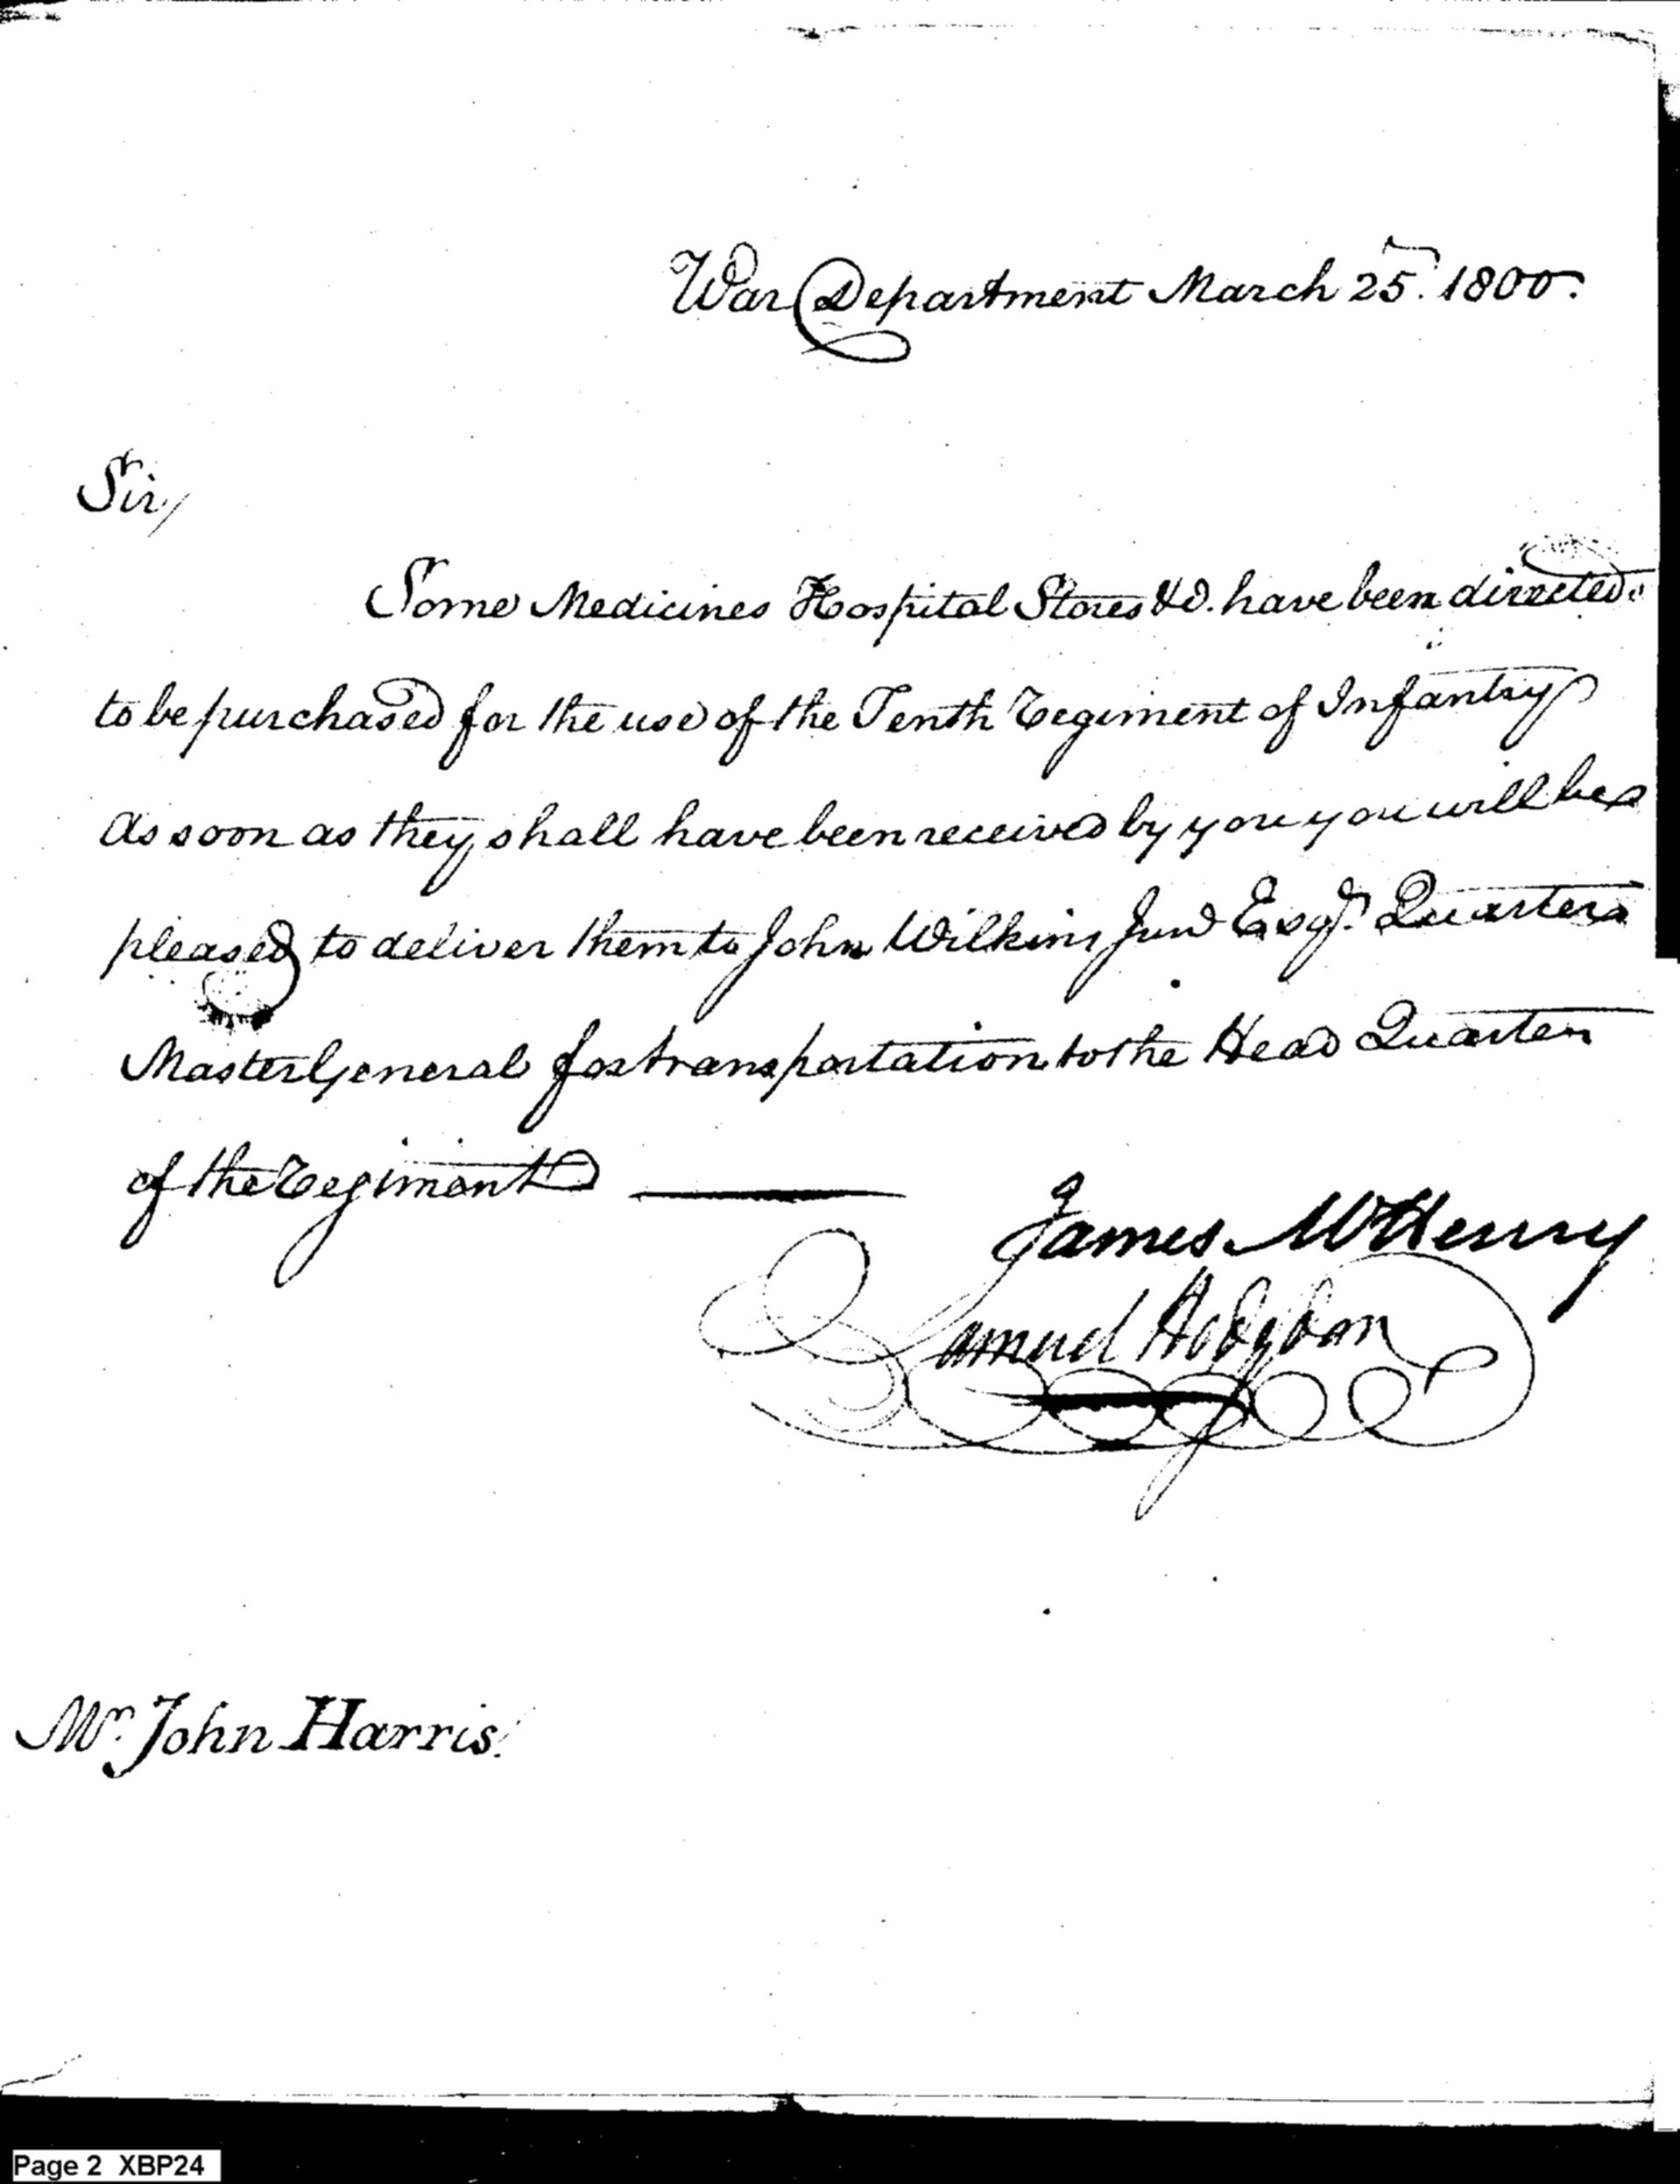 War Department March 25. 1800.
Sir,
Some Medicines Hospital Stores &c. have been directed
to be purchased for the use of the Tenth Regiment of Infantry
As soon as they shall have been received by you you will be
pleased to deliver them to John Wilkins Junr Esqr. Quarter
Master General for transportation to the Head Quarters
of the Regiment
James McHenry
Samuel Hodgdon
Mr. John Harris.
Page 2 XBP24